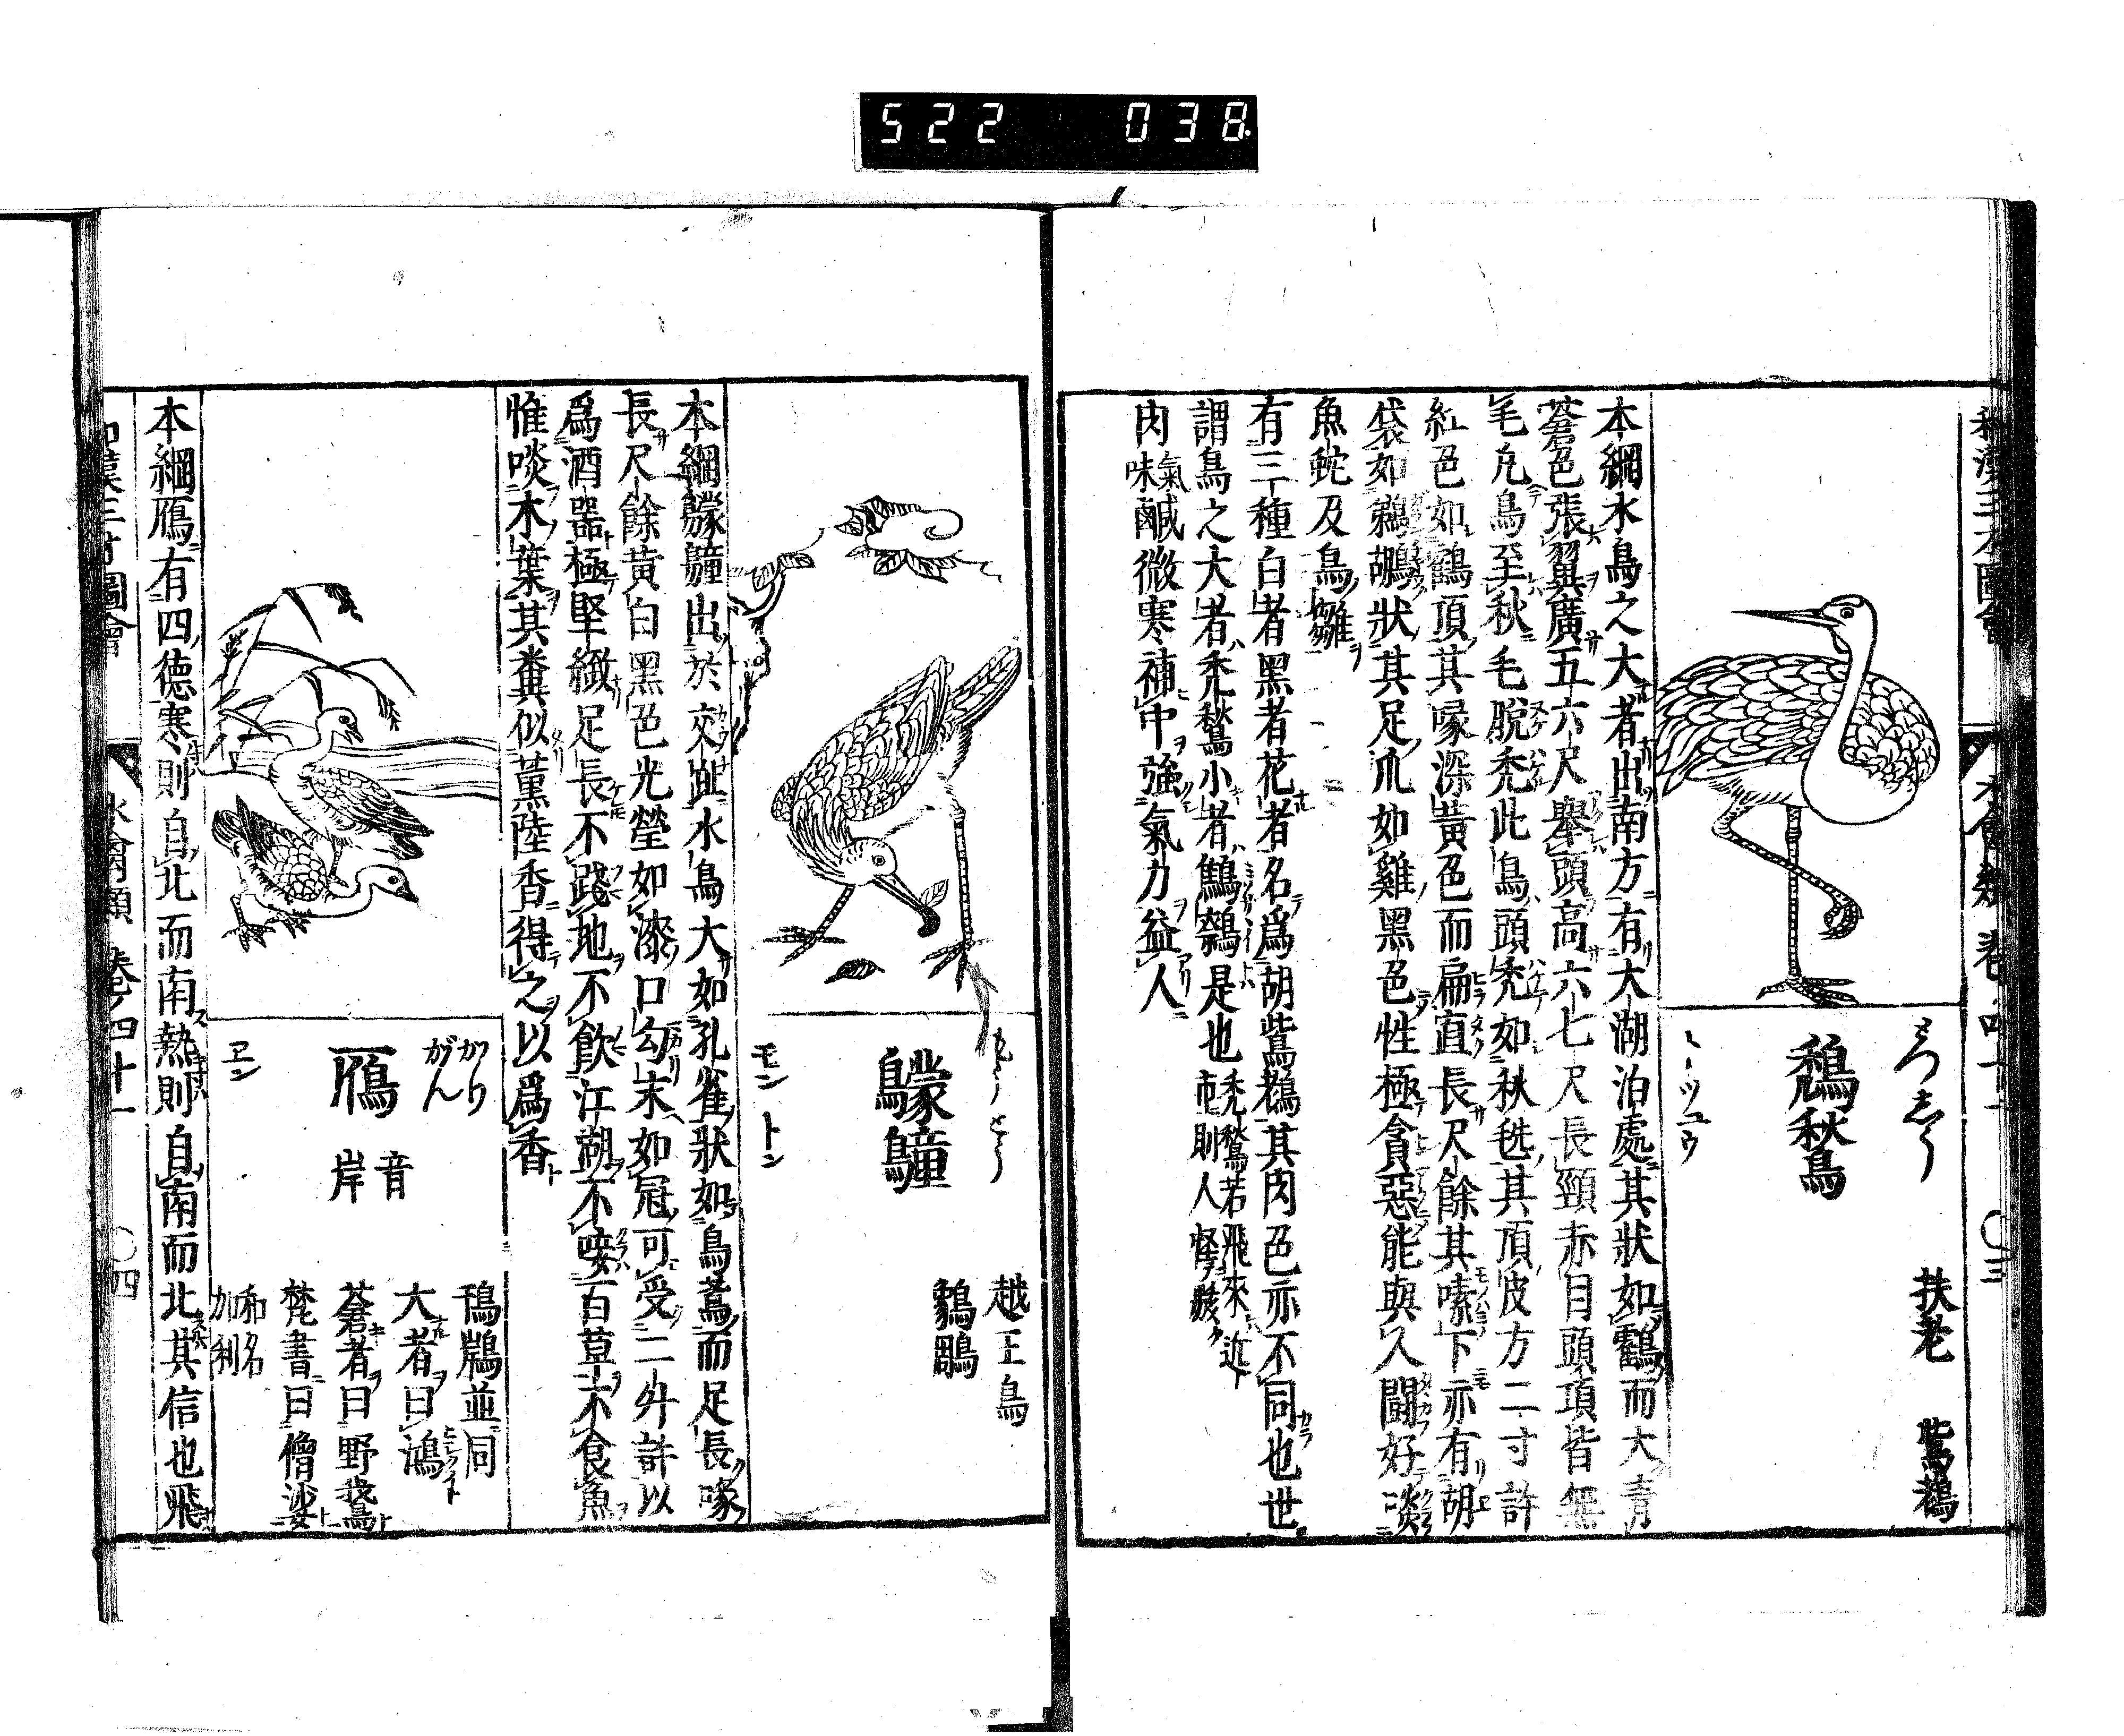 522 038
和漢三才圖會
水禽類 巻ノ四十一 〇三
扶老 鴜䳱
鵚鶖
本綱水鳥之大者出南方有大湖泊處其狀如鶴而大青
蒼色張翼廣五六尺擧頭高六七尺長頸赤目頭項皆無
毛凢鳥至秋毛脫禿此鳥頭禿如秋毨其頂皮方二寸許
紅色如鶴頂其喙深黃色而扁直長尺餘其嗉下亦有胡
袋如鵜鶘狀其足爪如雞黑色性極貪惡能與人闘好啖
魚蛇及鳥雛
有三種白者黑者花者名爲胡鴜䳱其肉色亦不同也世
謂鳥之大者禿鶖小者鷦鷯是也
禿鶖若飛來近
市則人怪駭
肉
氣味
鹹微寒補中強氣力益人
越王鳥
鸏鶴
モントン
本綱鸏鸖出於交趾水鳥大如孔雀狀如鳥鳶而足長喙
長尺餘黃白黑色光瑩如漆口勾末如冠可受二升許以
爲酒器極堅緻足長不踐地不飮江湖不唼百草不食魚
惟啖木葉其糞似薰陸香得之以爲香
かり
がん
鴈
音岸
ヱン
大者曰鴻
蒼者曰野鵞
梵書曰僧娑
和名
加利
本綱鴈有四德寒則自北而南熱則自南而北其信也飛
和漢三才圖會
水禽類 巻ノ四十一 〇四